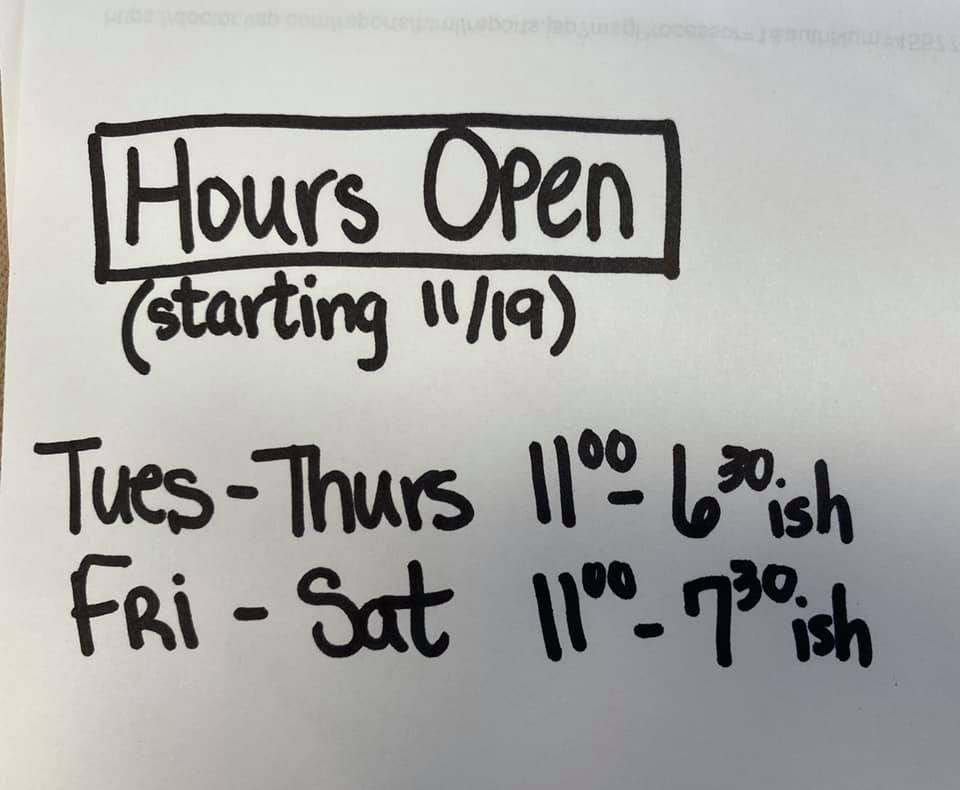 Hours Open
(starting 11/19)
Tues - Thurs 11⁰⁰ - 6³⁰ish
Fri - Sat 11⁰⁰ - 7³⁰ish